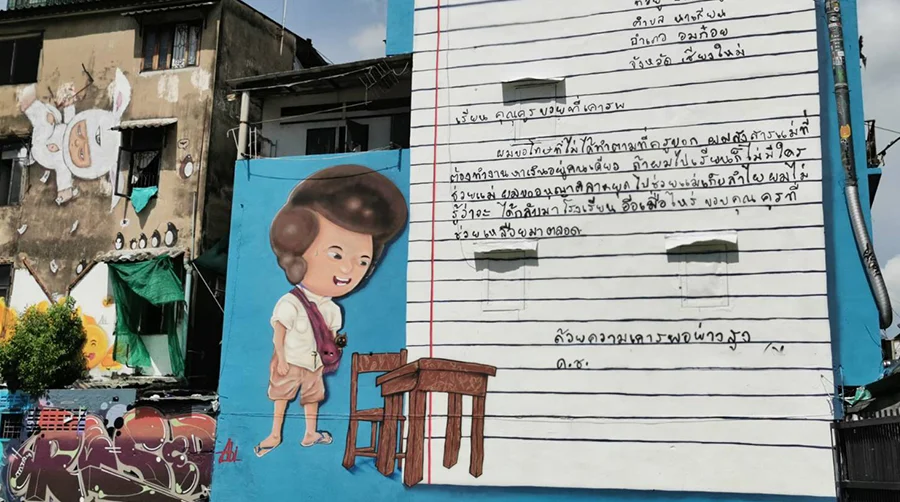 ตำบล นาเกียน
อำเภอ อมก๋อย
จังหวัด เชียงใหม่
เรียน คุณครูขวยที่เคารพ
ผมขอโทษที่ไม่ได้ทำตามที่ครูบอก ผมสงสารแม่ที่
ต้องทำงานหาเงินอยู่คนเดียว ถ้าผมไปเรียนก็ไม่มีใคร
ช่วยแม่ ผมขออนุญาติลาหยุดไปช่วยแม่เก็บลำไย ผมไม่
รู้ว่าจะ ได้กลับมาโรงเรียน อีกเมื่อไหร่ ขอบคุณ ครูที่
ช่วยเหลือผมมาตลอด
ด้วยความเคารพอย่างสูง
ด.ช.